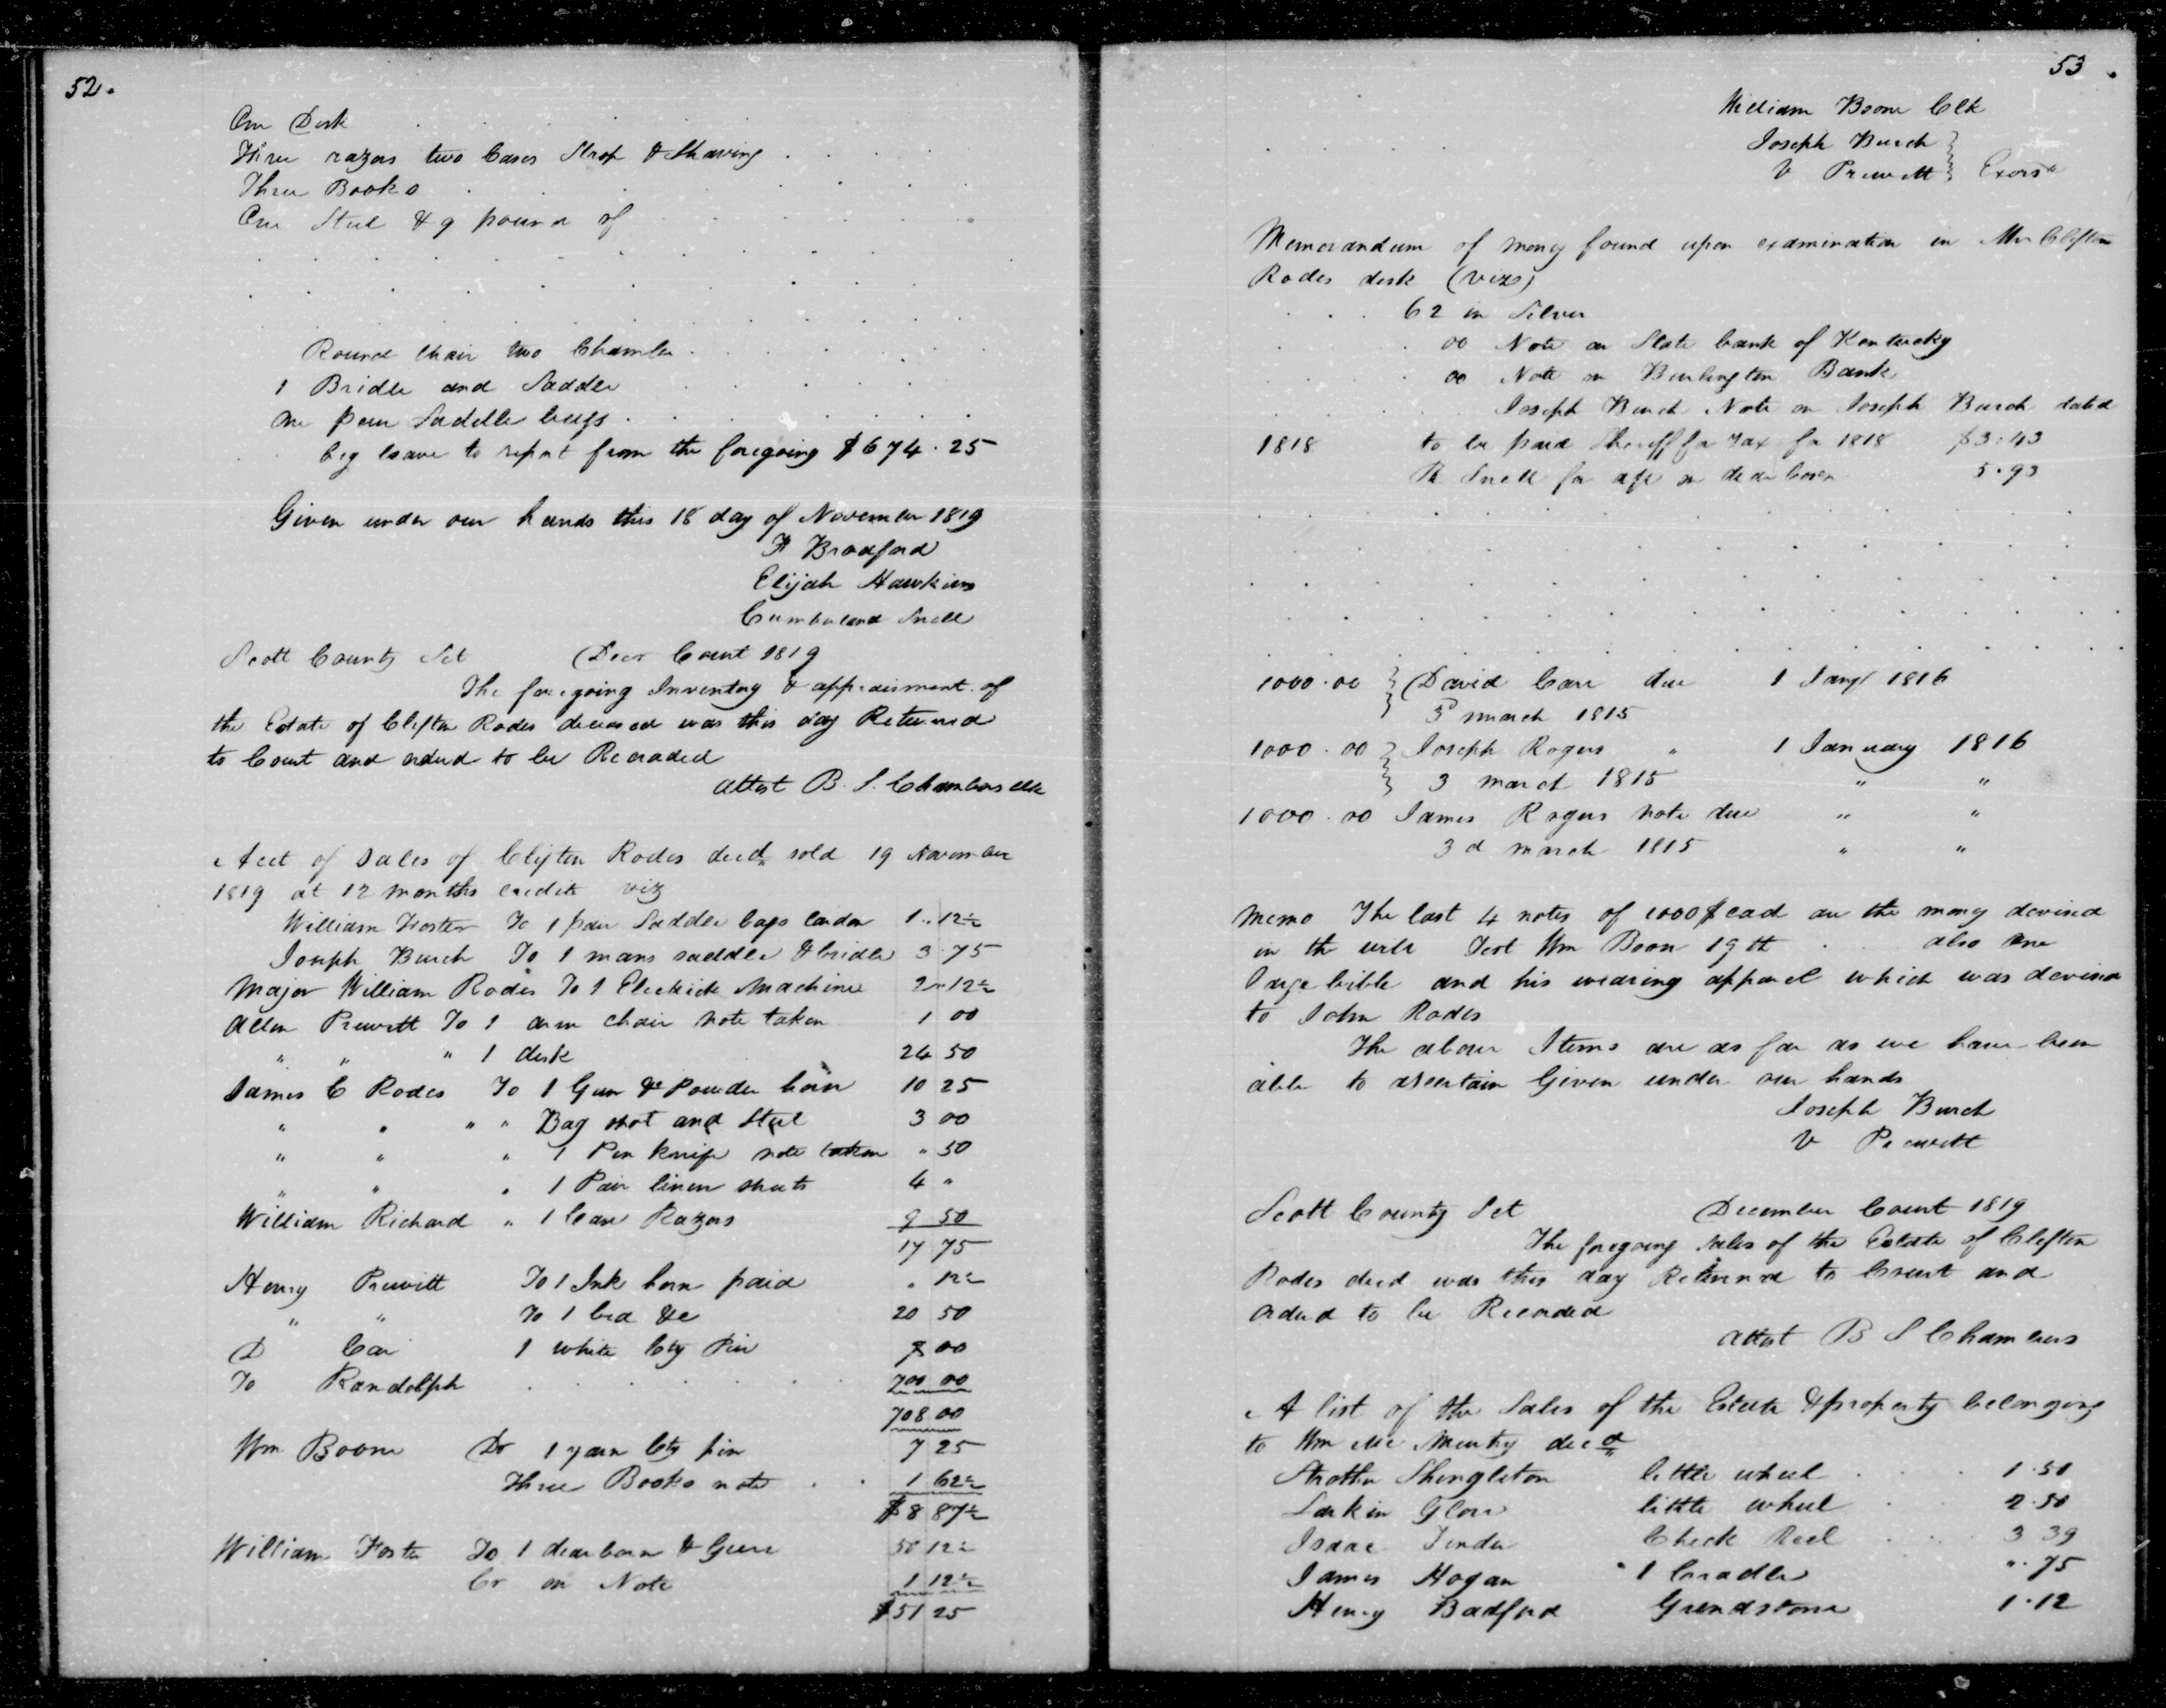 52.
One Desk
Three razors two Cases Strop & Shaving
Three Books
One Steel & 9 pound of
Round chair two Chamber
1 Bridle and Saddle
one pair Saddle bags
beg leave to report from the foregoing $674.25
Given under our hands this 18 day of November 1819
F Bradford
Elijah Hawkins
Cumberland Snell
Scott County Sct Decr Court 1819
The foregoing Inventory & appraisment of
the Estate of Clifton Rodes deceased was this day Returned
to Court and ordered to be Recorded
attest B. S. Chambers clk
Acct of Sales of Clifton Rodes decd sold 19 November
1819 at 12 months credit viz
William Foster To 1 pair Saddle bags 1..12½
Joseph Burch To 1 mans saddle & bridle 3.75
Major William Rodes To 1 Electrick Machine 2"12½
Allen Prewitt To 1 arm chair note taken 1 00
" " " 1 desk 24 50
James C Rodes To 1 Gun & Powder horn 10 25
" " " " Bag shot and Steel 3 00
" " " 1 Pen knife note taken " 50
" " " 1 Pair linen sheets 4 "
William Richard " 1 Case Razors 9 50
17 75
Henry Prewitt To 1 Ink horn paid " 12½
" " To 1 bed &c 20 50
D Carr 1 white Cty Pin 8 00
To Randolph 700 00
708.00
Wm Boone Dr 1 yarn Cty pin 7 25
Three Books note 1 62½
$8 87½
William Foster To 1 dearborn & Geere 50 12½
Cr on Note 1 12½
$51 25
53.
William Boone Clk
Joseph Burch
V Prewitt } Exors
Memorandum of money found upon examination in Mr Clifton
Rodes desk (vizs)
62 in Silver
00 Note on State bank of Kentucky
00 Note on Burlington Bank
Joseph Burch Note on Joseph Burch dated
1818 to be paid Sheriff for Tax for 1818 $3.43
R Snell for on dearborn 5.93
1000.00 } David Carr due 1 Jany 1816
3d march 1815
1000.00 } Joseph Rogers " 1 January 1816
3 march 1815 " "
1000.00 James Rogers note due " "
3d march 1815 " "
Memo The last 4 notes of 1000$ ead are the money devised
in the will Test Wm Boon 19th also one
large bible and his wearing apparel which was devised
to John Rodes
The above Items are as far as we have been
able to ascertain Given under our hands
Joseph Burch
V Prewitt
Scott County Sct December Court 1819
The foregoing sales of the Estate of Clifton
Rodes decd was this day Returned to Court and
ordered to be Recorded
attest B S Chambers
A list of the Sales of the Estate & property belonging
to Wm Mc decd
Strother Shingleton little wheel 1.50
Larkin Glore little wheel 2.50
Isaac Tinder Check Reel 3 39
James Hogan " 1 Craddle ".75
Henry Badford Grindstone 1.12